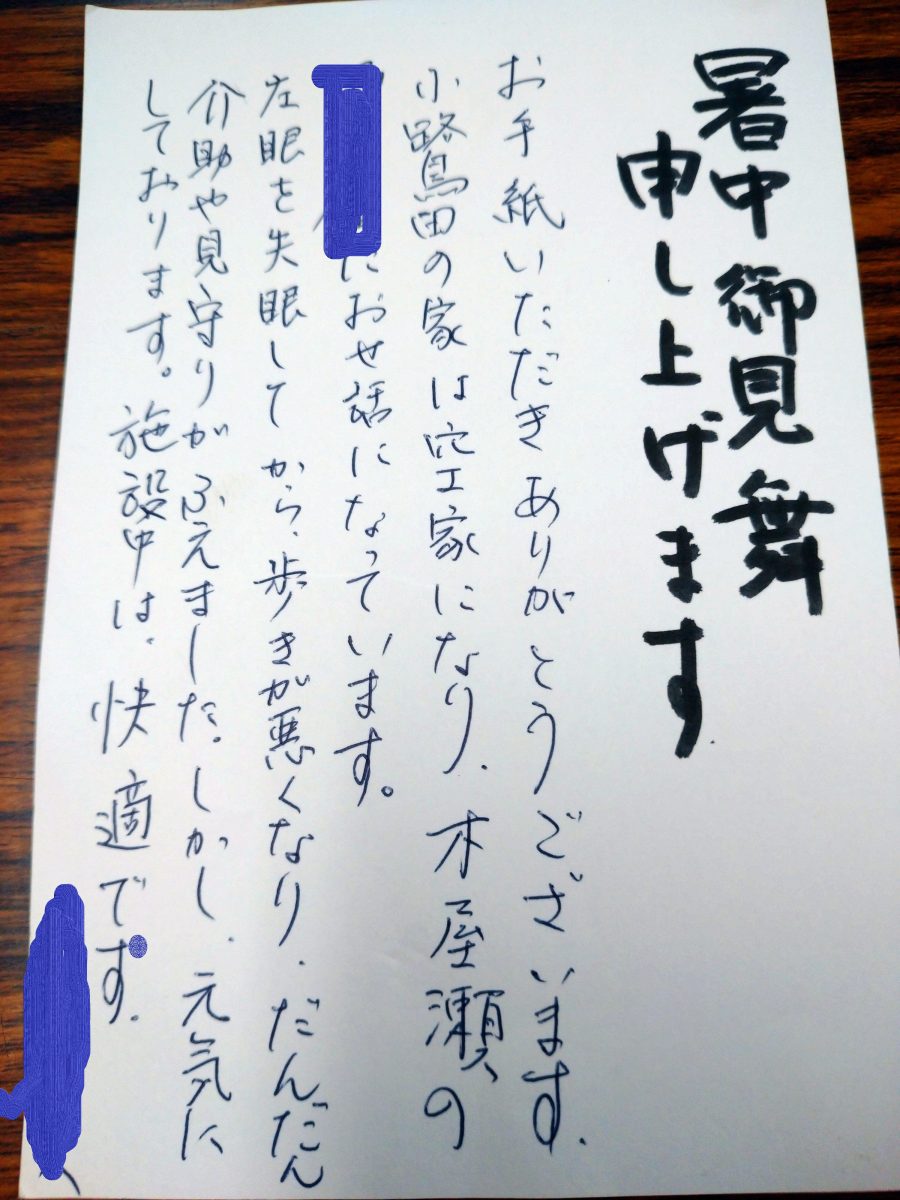 暑中御見舞
申し上げます
お手紙いただきありがとうございます.
小鷺田の家は空家になり、木屋瀬の
におせ話になっています。
左眼を失眼してから、歩きが悪くなり、だんだん
介助や見守りがふえました。しかし、元気に
しております。施設中は、快適です.